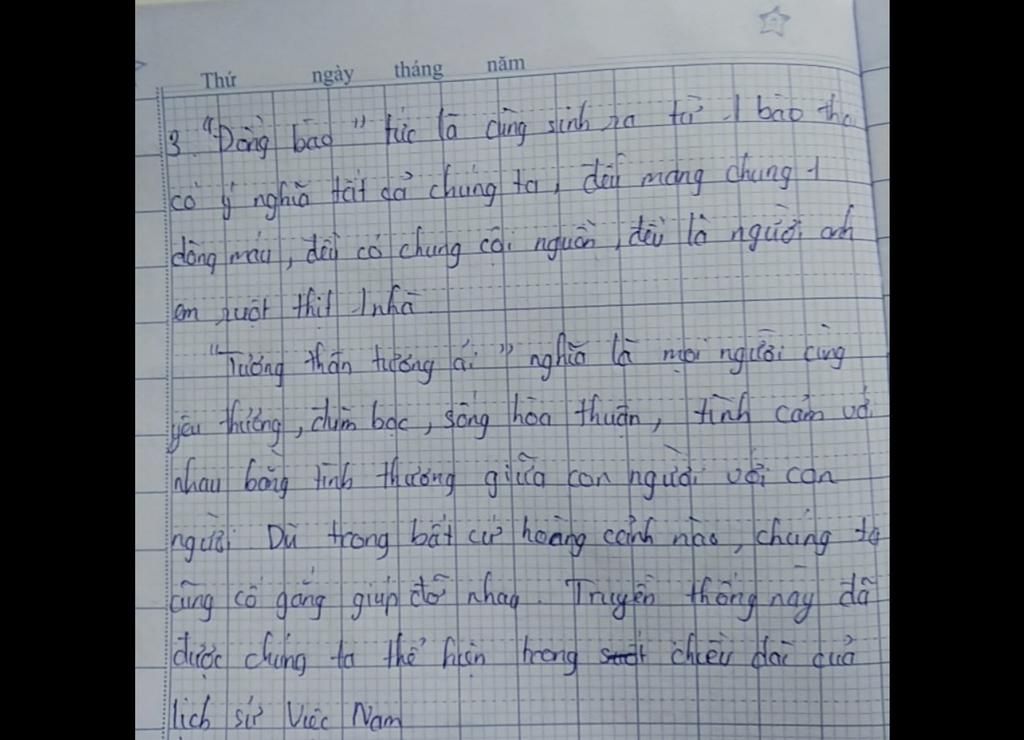 Thứ ngày tháng năm
3 "Đồng bào" tức là cùng sinh ra từ 1 bào tha
có ý nghĩa tất cả chúng ta, đều mang chung 1
dòng máu, đều có chung cội nguồn, đều là người anh
em ruột thịt 1 nhà
"Tương thân tương ái" nghĩa là mọi người cùng
yêu thương, đùm bọc, sống hòa thuận, tình cảm với
nhau bằng tình thương giữa con người với con
người. Dù trong bất cứ hoàng cảnh nào, chúng ta
cũng cố gắng giúp đỡ nhau. Truyền thống này đã
được chúng ta thể hiện trong suốt chiều dài của
lịch sử Việc Nam